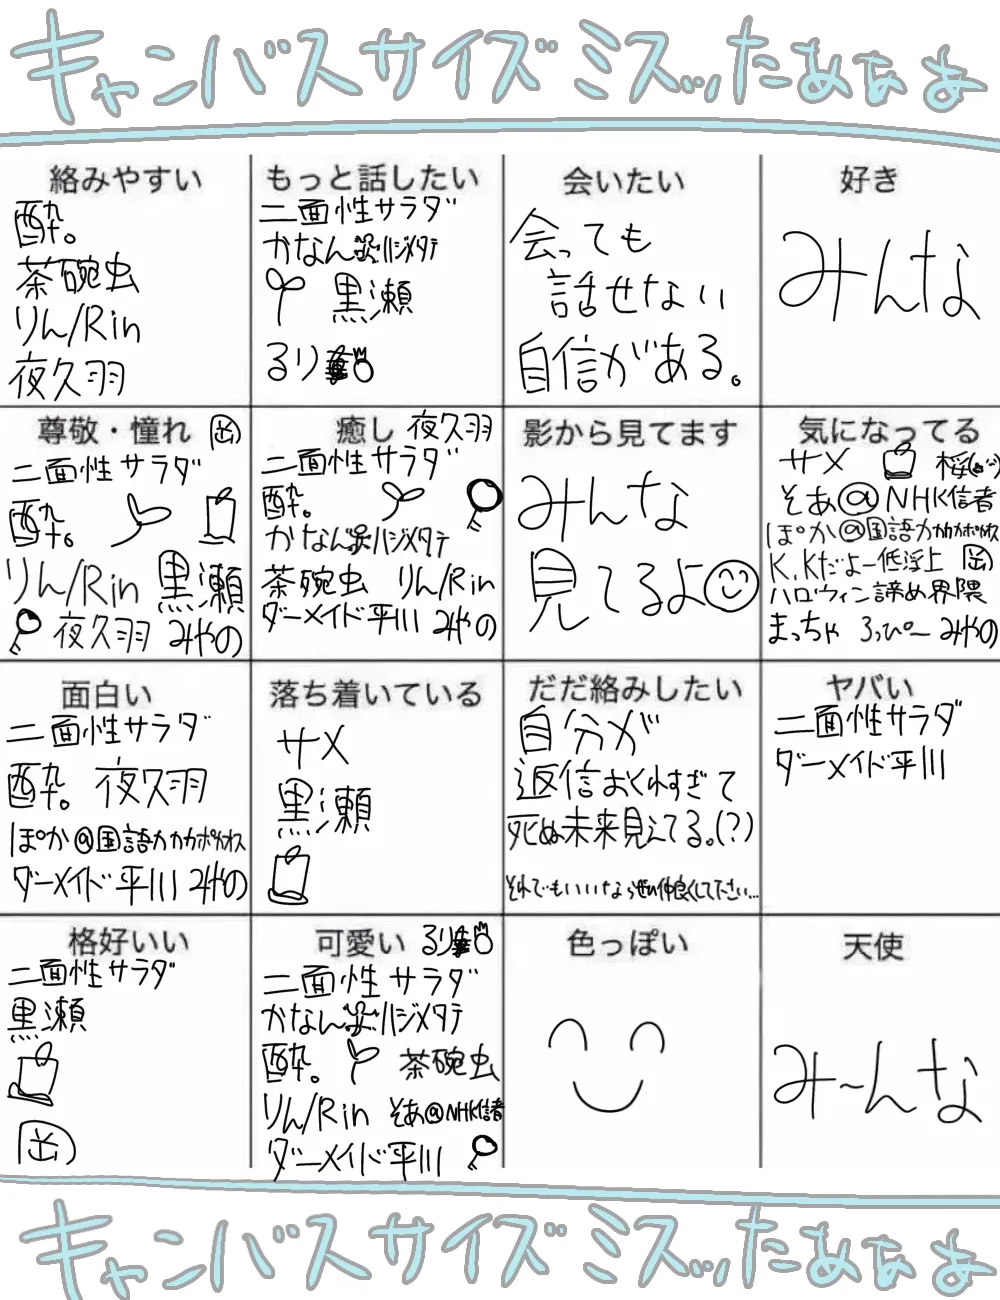 キャンバスサイズミスッたぁぁぁ
絡みやすい
酔。
茶碗虫
りん/Rin
夜久羽
もっと話したい
二面性サラダ
かなん
ハジメタテ
黒瀬
るり
会いたい
会っても
話せない
自信がある。
好き
みんな
尊敬・憧れ
囚
二面性サラダ
酔。
りん/Rin 黒瀬
夜久羽 みやの
癒し 夜久羽
二面性サラダ
酔。
かなん ハジメタテ
茶碗虫 りん/Rin
ダーメイド平川 みやの
影から見てます
みんな
見てるよ
気になってる
サメ 桜
そあ@NHK信者
ぽか@国語カカカポカオス
K.Kだよー低浮上
ハロウィン諦め界隈
まっちゃ ろっぴー みやの
面白い
二面性サラダ
酔。 夜久羽
ぽか@国語カカカポカオス
ダーメイド平川 みやの
落ち着いている
サメ
黒瀬
だだ絡みしたい
自分が
返信おくれすぎて
死ぬ未来見えてる。(?)
それでもいいならぜひ仲良くして下さい…
ヤバい
二面性サラダ
ダーメイド平川
格好いい
二面性サラダ
黒瀬
可愛い るり
二面性サラダ
かなん ハジメタテ
酔。 茶碗虫
りん/Rin そあ@NHK信者
ダーメイド平川
色っぽい
天使
み~んな
キャンバスサイズミスッたぁぁぁ